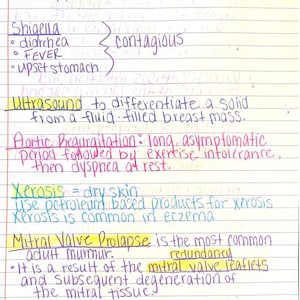 Shigella
• diarrhea
• FEVER
• upset stomach
contagious
Ultrasound to differentiate a solid
from a fluid-filled breast mass.
Aortic Regurgitation: long, asymptomatic
period followed by exercise intolerance,
then dyspnea at rest.
Xerosis = dry skin
Use petroleum based products for xerosis
Xerosis is common in eczema
Mitral Valve Prolapse is the most common
adult murmur.
redundancy
• It is a result of the mitral valve leaflets
and subsequent degeneration of
the mitral tissue.